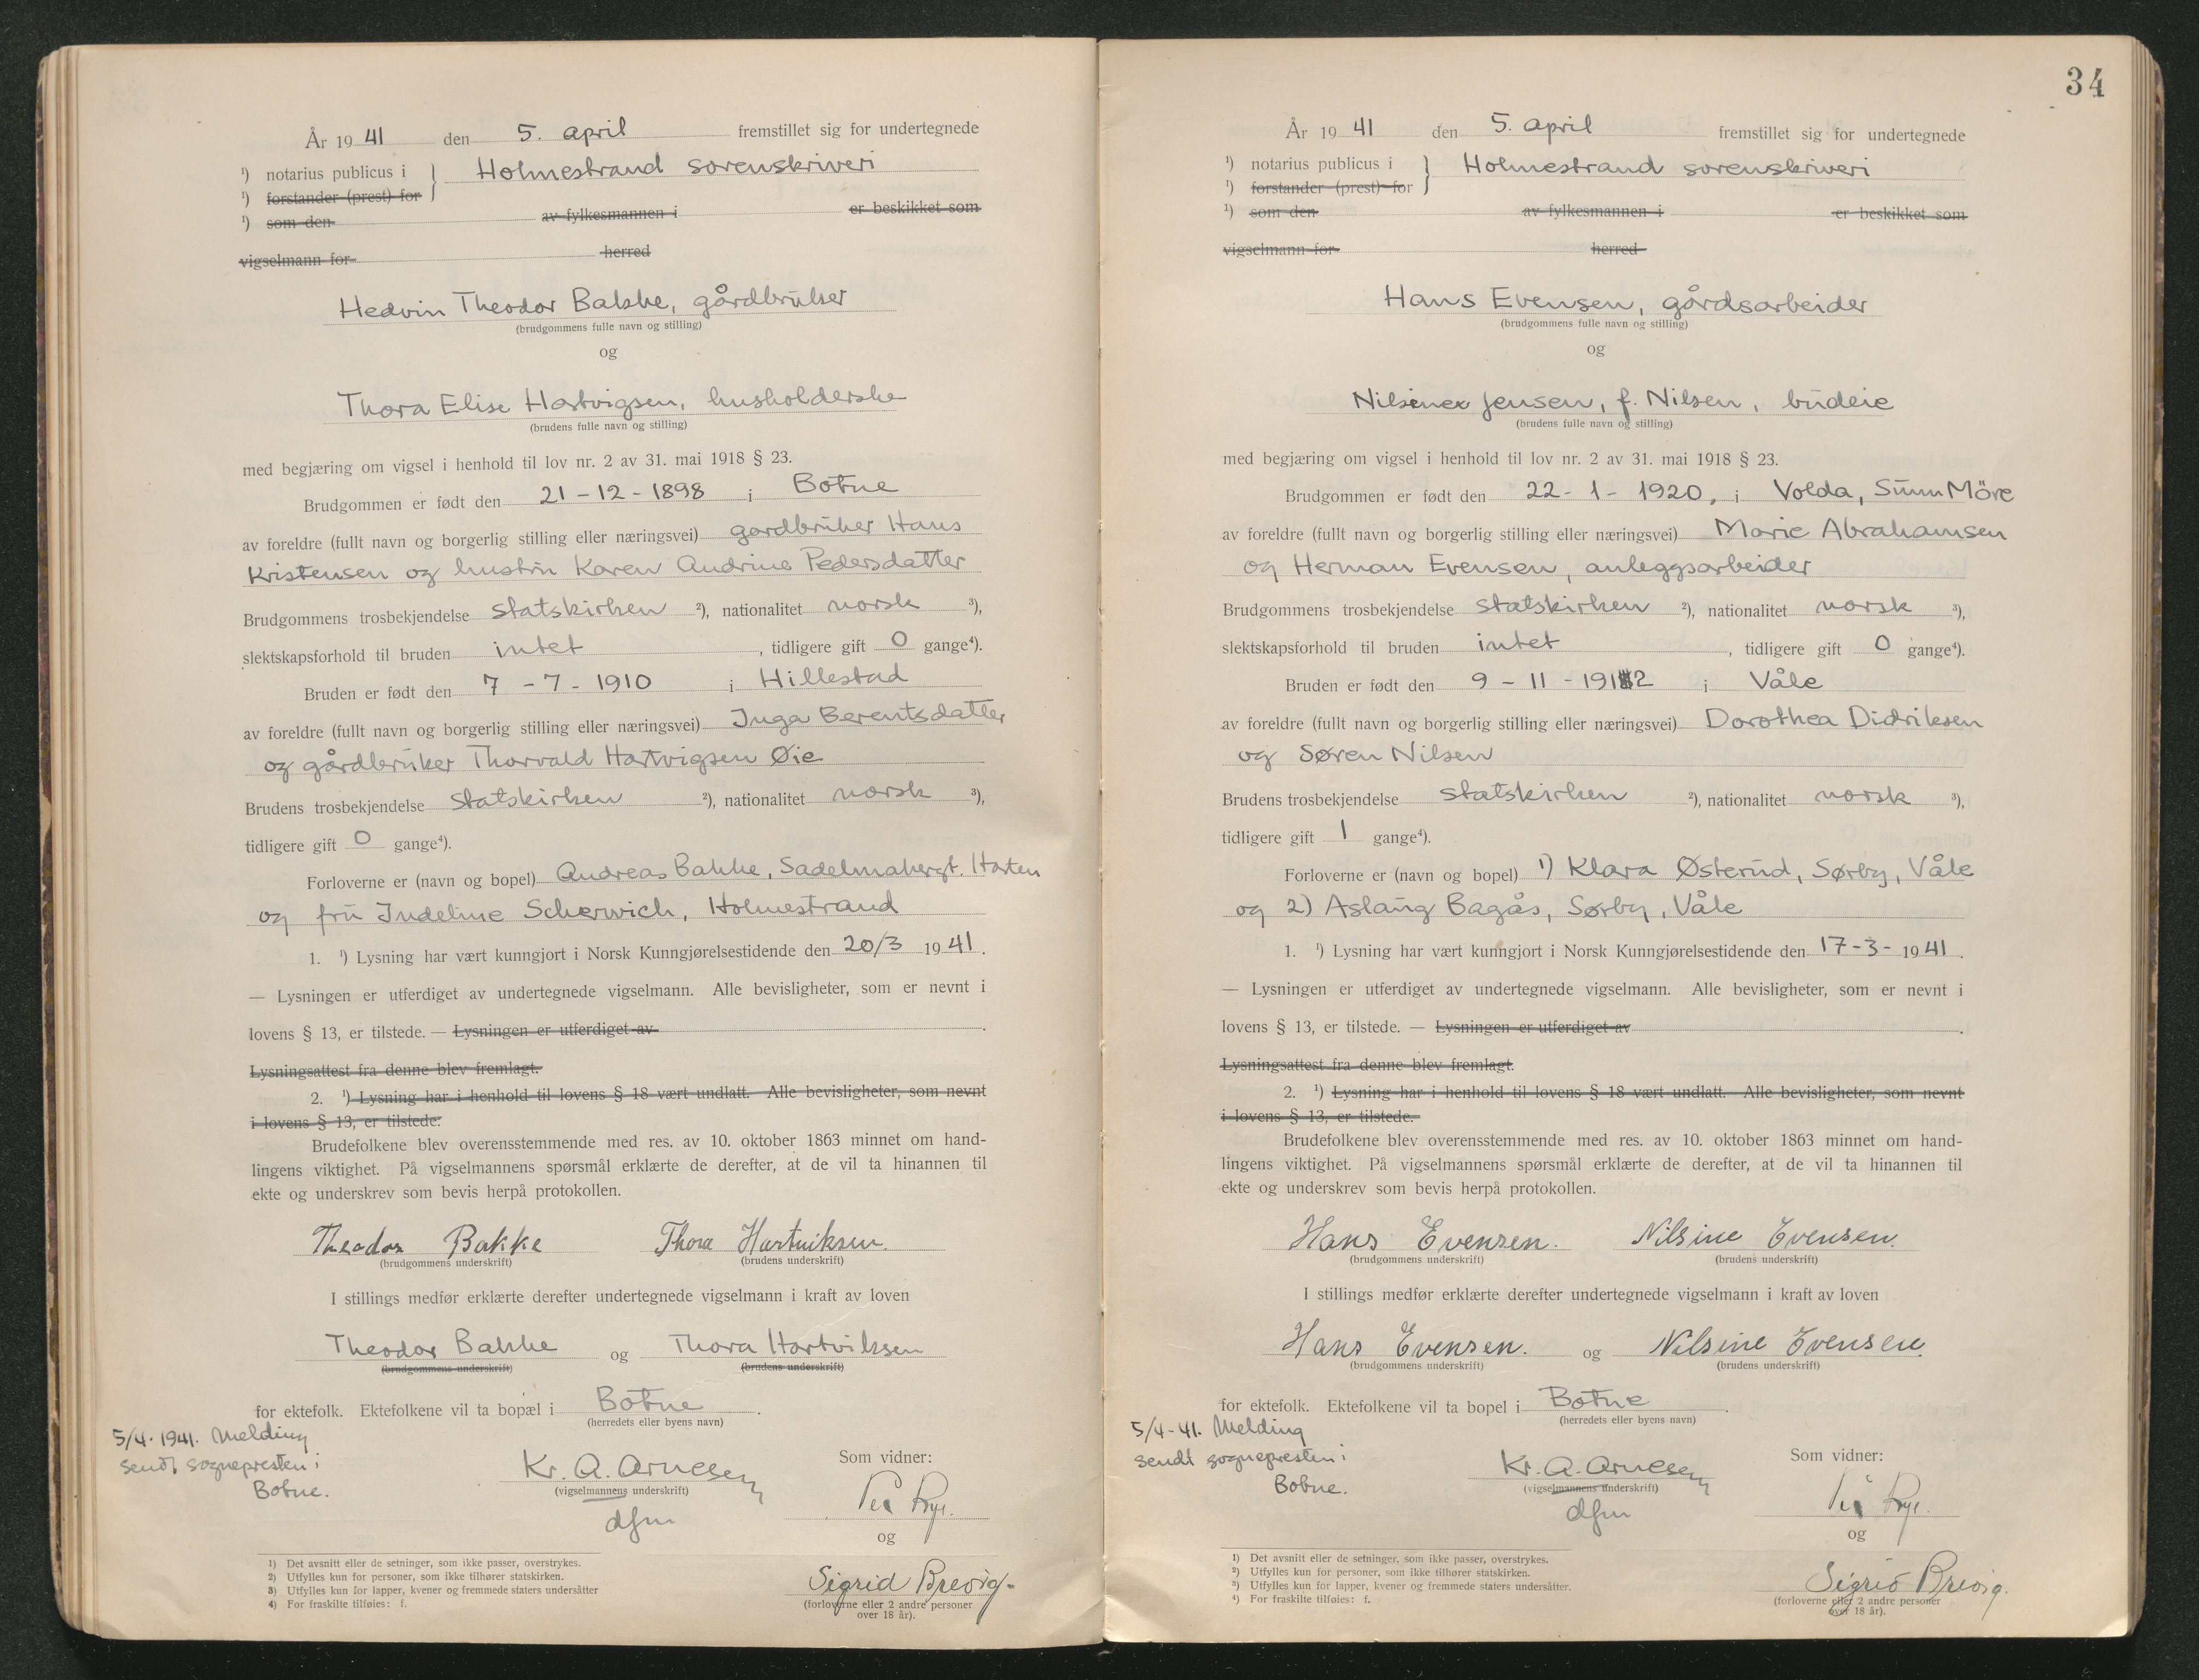 År 19 41 den 5. april fremstillet sig for undertegnede
¹) notarius publicus i } Holmestrand sorenskriveri
¹) forstander (prest) for
¹) som den av fylkesmannen i er beskikket som
vigselmann for herred
Hedvin Theodor Bakke, gårdbruker
(brudgommens fulle navn og stilling)
og
Thora Elise Hartvigsen, husholderske
(brudens fulle navn og stilling)
med begjæring om vigsel i henhold til lov nr. 2 av 31. mai 1918 § 23.
Brudgommen er født den 21-12-1898 i Botne
av foreldre (fullt navn og borgerlig stilling eller næringsvei) gardbruker Hans
Kristensen og hustru Karen Andrine Pedersdatter
Brudgommens trosbekjendelse statskirken ²), nationalitet norsk ³),
slektskapsforhold til bruden intet, tidligere gift 0 gange⁴).
Bruden er født den 7-7-1910 i Hillestad
av foreldre (fullt navn og borgerlig stilling eller næringsvei) Inga Berentsdatter
og gårdbruker Thorvald Hartvigsen Øie
Brudens trosbekjendelse statskirken ²), nationalitet norsk ³),
tidligere gift 0 gange⁴).
Forloverne er (navn og bopel) Andreas Bakke, Sadelmakergt. Horten
og fru Indeline Scherwich, Holmestrand
1. ¹) Lysning har vært kunngjort i Norsk Kunngjørelsestidende den 20/3 19 41.
— Lysningen er utferdiget av undertegnede vigselmann. Alle bevisligheter, som er nevnt i
lovens § 13, er tilstede. — Lysningen er utferdiget av .
Lysningsattest fra denne blev fremlagt.
2. ¹) Lysning har i henhold til lovens § 18 vært undlatt. Alle bevisligheter, som nevnt
i lovens § 13, er tilstede.
Brudefolkene blev overensstemmende med res. av 10. oktober 1863 minnet om hand-
lingens viktighet. På vigselmannens spørsmål erklærte de derefter, at de vil ta hinannen til
ekte og underskrev som bevis herpå protokollen.
Theodor Bakke Thora Hartviksen.
(brudgommens underskrift) (brudens underskrift)
I stillings medfør erklærte derefter undertegnede vigselmann i kraft av loven
Theodor Bakke og Thora Hartviksen
(brudgommens underskrift) (brudens underskrift)
for ektefolk. Ektefolkene vil ta bopæl i Botne.
(herredets eller byens navn)
5/4-1941. Melding
sendt sognepresten i
Botne.
Kr. A. Arnesen
(vigselmannens underskrift)
dfm
Som vidner:
Prye.
og
Sigrid Brevig.
(forloverne eller 2 andre personer
over 18 år).
1) Det avsnitt eller de setninger, som ikke passer, overstrykes.
2) Utfylles kun for personer, som ikke tilhører statskirken.
3) Utfylles kun for lapper, kvener og fremmede staters undersåtter
4) For fraskilte tilføies: f.
34
År 19 41 den 5. april fremstillet sig for undertegnede
¹) notarius publicus i } Holmestrand sorenskriveri
¹) forstander (prest) for
¹) som den av fylkesmannen i er beskikket som
vigselmann for herred
Hans Evensen, gårdsarbeider
(brudgommens fulle navn og stilling)
og
Nilsine Jensen, f. Nilsen, budeie
(brudens fulle navn og stilling)
med begjæring om vigsel i henhold til lov nr. 2 av 31. mai 1918 § 23.
Brudgommen er født den 22-1-1920, i Volda, Sunn Möre
av foreldre (fullt navn og borgerlig stilling eller næringsvei) Marie Abrahamsen
og Herman Evensen, anleggsarbeider
Brudgommens trosbekjendelse statskirken ²), nationalitet norsk ³),
slektskapsforhold til bruden intet, tidligere gift 0 gange⁴).
Bruden er født den 9-11-1912 i Våle
av foreldre (fullt navn og borgerlig stilling eller næringsvei) Dorothea Didriksen
og Søren Nilsen
Brudens trosbekjendelse statskirken ²), nationalitet norsk ³),
tidligere gift 1 gange⁴).
Forloverne er (navn og bopel) 1) Klara Østerud, Sørby, Våle
og 2) Aslaug Bagås, Sørby, Våle
1. ¹) Lysning har vært kunngjort i Norsk Kunngjørelsestidende den 17-3-19 41.
— Lysningen er utferdiget av undertegnede vigselmann. Alle bevisligheter, som er nevnt i
lovens § 13, er tilstede. — Lysningen er utferdiget av .
Lysningsattest fra denne blev fremlagt.
2. ¹) Lysning har i henhold til lovens § 18 vært undlatt. Alle bevisligheter, som nevnt
i lovens § 13, er tilstede.
Brudefolkene blev overensstemmende med res. av 10. oktober 1863 minnet om hand-
lingens viktighet. På vigselmannens spørsmål erklærte de derefter, at de vil ta hinannen til
ekte og underskrev som bevis herpå protokollen.
Hans Evensen. Nilsine Evensen.
(brudgommens underskrift) (brudens underskrift)
I stillings medfør erklærte derefter undertegnede vigselmann i kraft av loven
Hans Evensen. og Nilsine Evensen.
(brudgommens underskrift) (brudens underskrift)
for ektefolk. Ektefolkene vil ta bopel i Botne.
(herredets eller byens navn)
5/4-41. Melding
sendt sognepresten i
Botne.
Kr. A. Arnesen
(vigselmannens underskrift)
dfm
Som vidner:
Prye.
og
Sigrid Brevig.
(forloverne eller 2 andre personer
over 18 år).
1) Det avsnitt eller de setninger, som ikke passer, overstrykes.
2) Utfylles kun for personer, som ikke tilhører statskirken.
3) Utfylles kun for lapper, kvener og fremmede staters undersåtter.
4) For fraskilte tilføies: f.